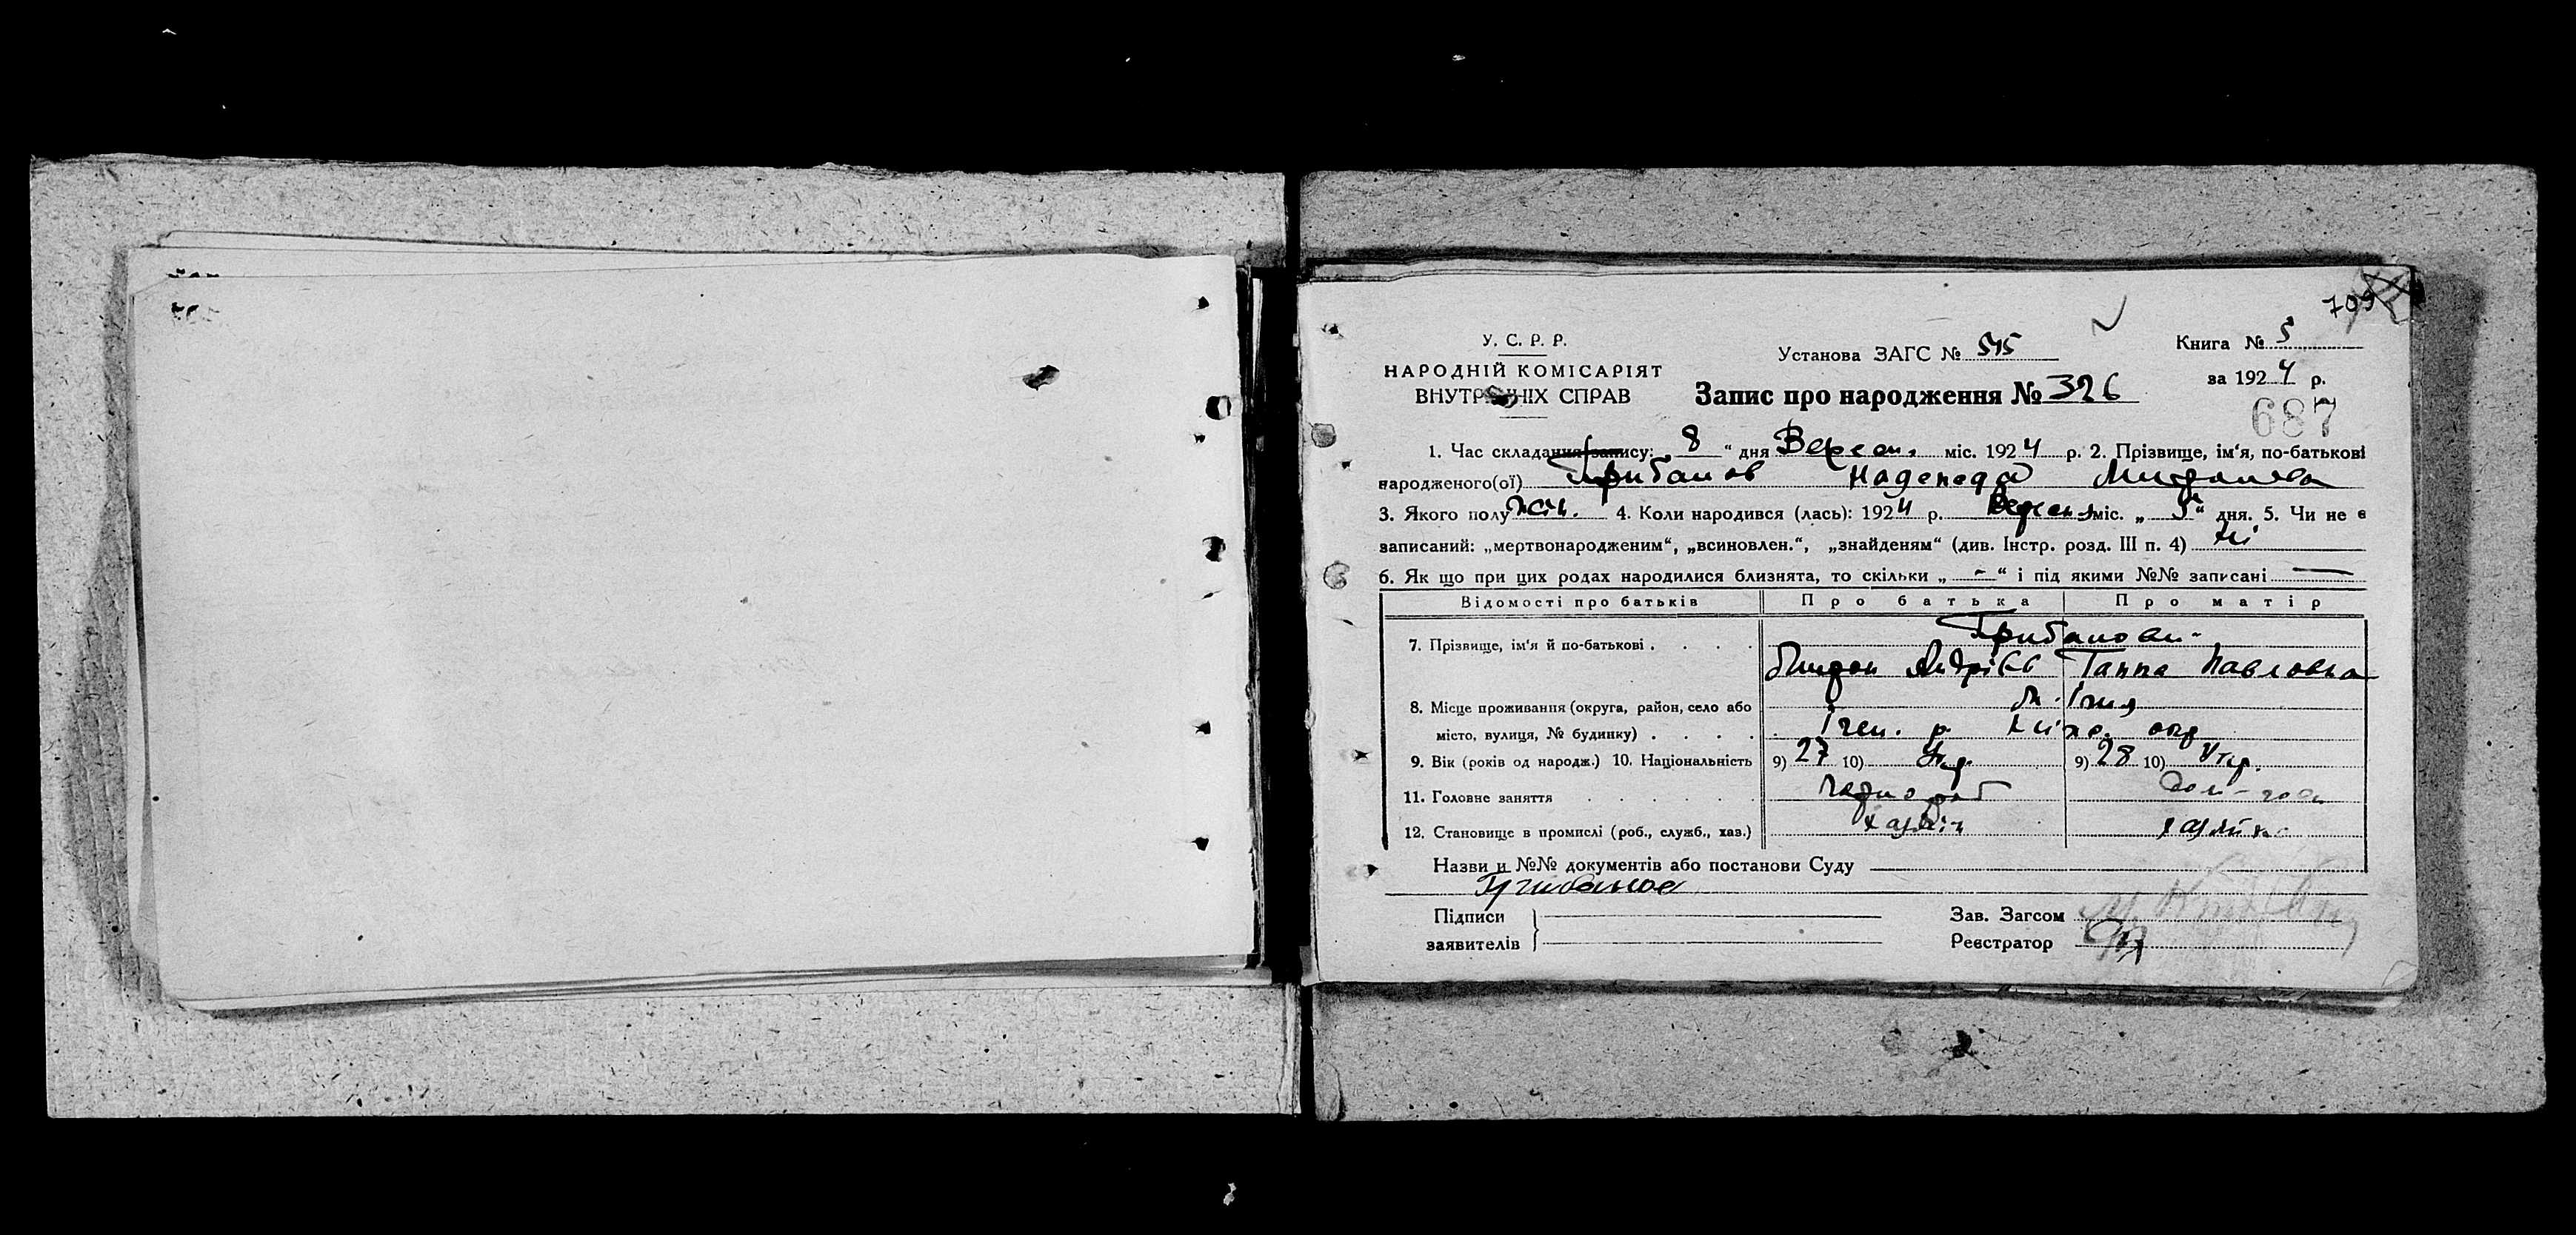 709
У. С. Р. Р.
НАРОДНІЙ КОМІСАРІЯТ
ВНУТРІШНІХ СПРАВ
Установа ЗАГС № 545
Книга № 5
за 1924 р.
Запис про народження № 326
687
1. Час складання запису: 8 “ дня Вересн. міс. 1924 р. 2. Прізвище, ім‘я, по-батькові
народженого(ої) Грибанов Надежда
3. Якого полу жін. 4. Коли народився (лась): 1924 р. Вересня міс. „ 5 “ дня. 5. Чи не є
записаний: „мертвонародженим“, „всиновлен.“, „знайденям“ (див. Інстр. розд. III п. 4) Ні
6. Як що при цих родах народилися близнята, то скільки „ - “ і під якими №№ записані —
Відомості про батьків Про батька Про матір
7. Прізвище, ім‘я й по-батькові . . . . Грибанови
Андрієв Ганна Павловна
8. Місце проживання (округа, район, село або м. Ічня
місто, вулиця, № будинку) . . . . Ічен. р. окр
9. Вік (років од народж.) 10. Національність 9) 27 10) Укр. 9) 28 10) Укр.
11. Головне заняття . . . . .
12. Становище в промислі (роб., служб., хаз.) хазяїн хазяйка
Назви и №№ документів або постанови Суду
Грибанов
Підписи
заявителів
Зав. Загсом
Реєстратор